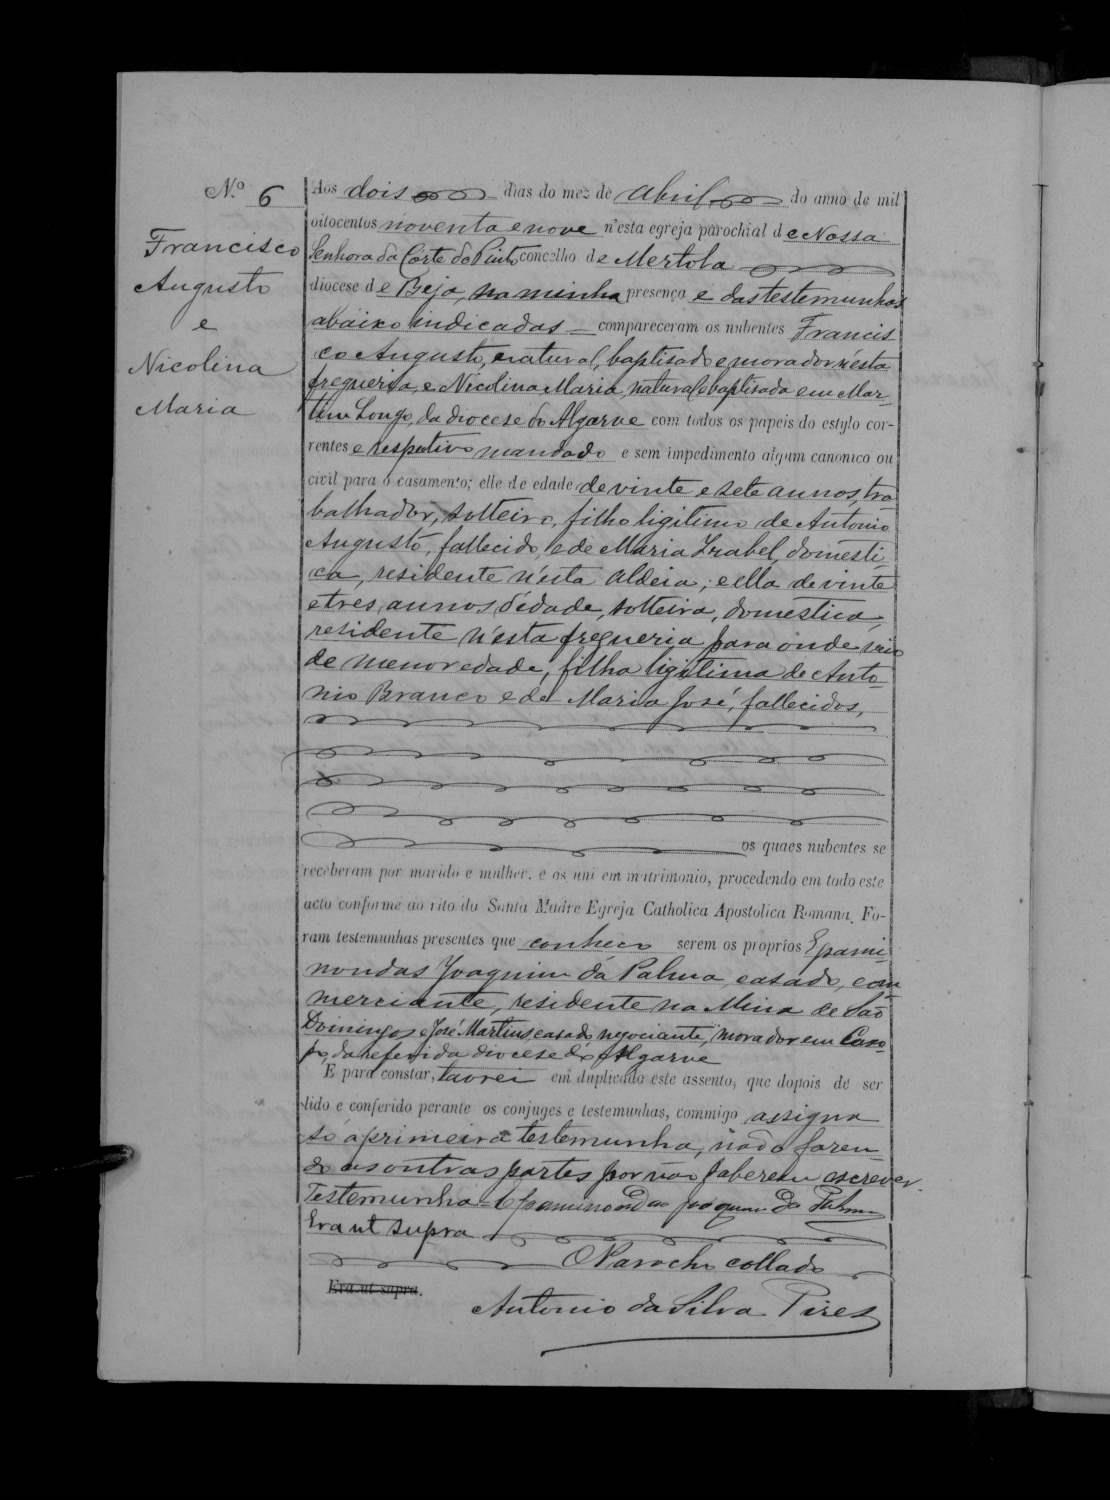 N.º 6
Francisco
Augusto
e
Nicolina
Maria
Aos dois dias do mez de Abril do anno de mil
oitocentos noventa e nove n'esta egreja parochial de Nossa
Senhora da Côrte do Pinto concelho de Mertola
diocese de Beja, na minha presença e das testemunhas
abaixo indicadas compareceram os nubentes Francis
co Augusto, natural, baptisado e morador n'esta
freguezia, e Nicolina Maria, natural e baptisada em Mar-
tim Longo, da diocese do Algarve com todos os papeis do estylo cor-
rentes e respectivo mandado e sem impedimento algum canonico ou
civil para o casamento; elle de edade de vinte e sete annos, tra
balhador, solteiro, filho ligitimo de Antonio
Augusto, fallecido, e de Maria Izabel, domesti-
ca, residente n'esta aldeia; e ella de vinte
e tres annos d'edade, solteira, domestica,
residente n'esta freguezia para onde veio
de menor edade, filha ligitima de Anto-
nio Branco e de Maria José, fallecidos,
os quaes nubentes se
receberam por marido e mulher, e os uni em matrimonio, procedendo em todo este
acto conforme ao rito da Santa Madre Egreja Catholica Apostolica Romana. Fo-
ram testemunhas presentes que conheco serem os proprios Epami-
nondas Joaquim da Palma, casado, com-
merciante, residente na Mina de São
Domingos e José Martins, casado, negociante, morador em
da referida diocese do Algarve
E para constar, lavrei em duplicado este assento, que dopois de ser
lido e conferido perante os conjuges e testemunhas, commigo assigna
só a primeira testemunha, não o fazen-
do as outras partes por não saberem escrever.
Testemunha = Epaminondas Joaquim da Palma
Era ut supra
O Parocho collado
Era ut supra.
Antonio da Silva Pires